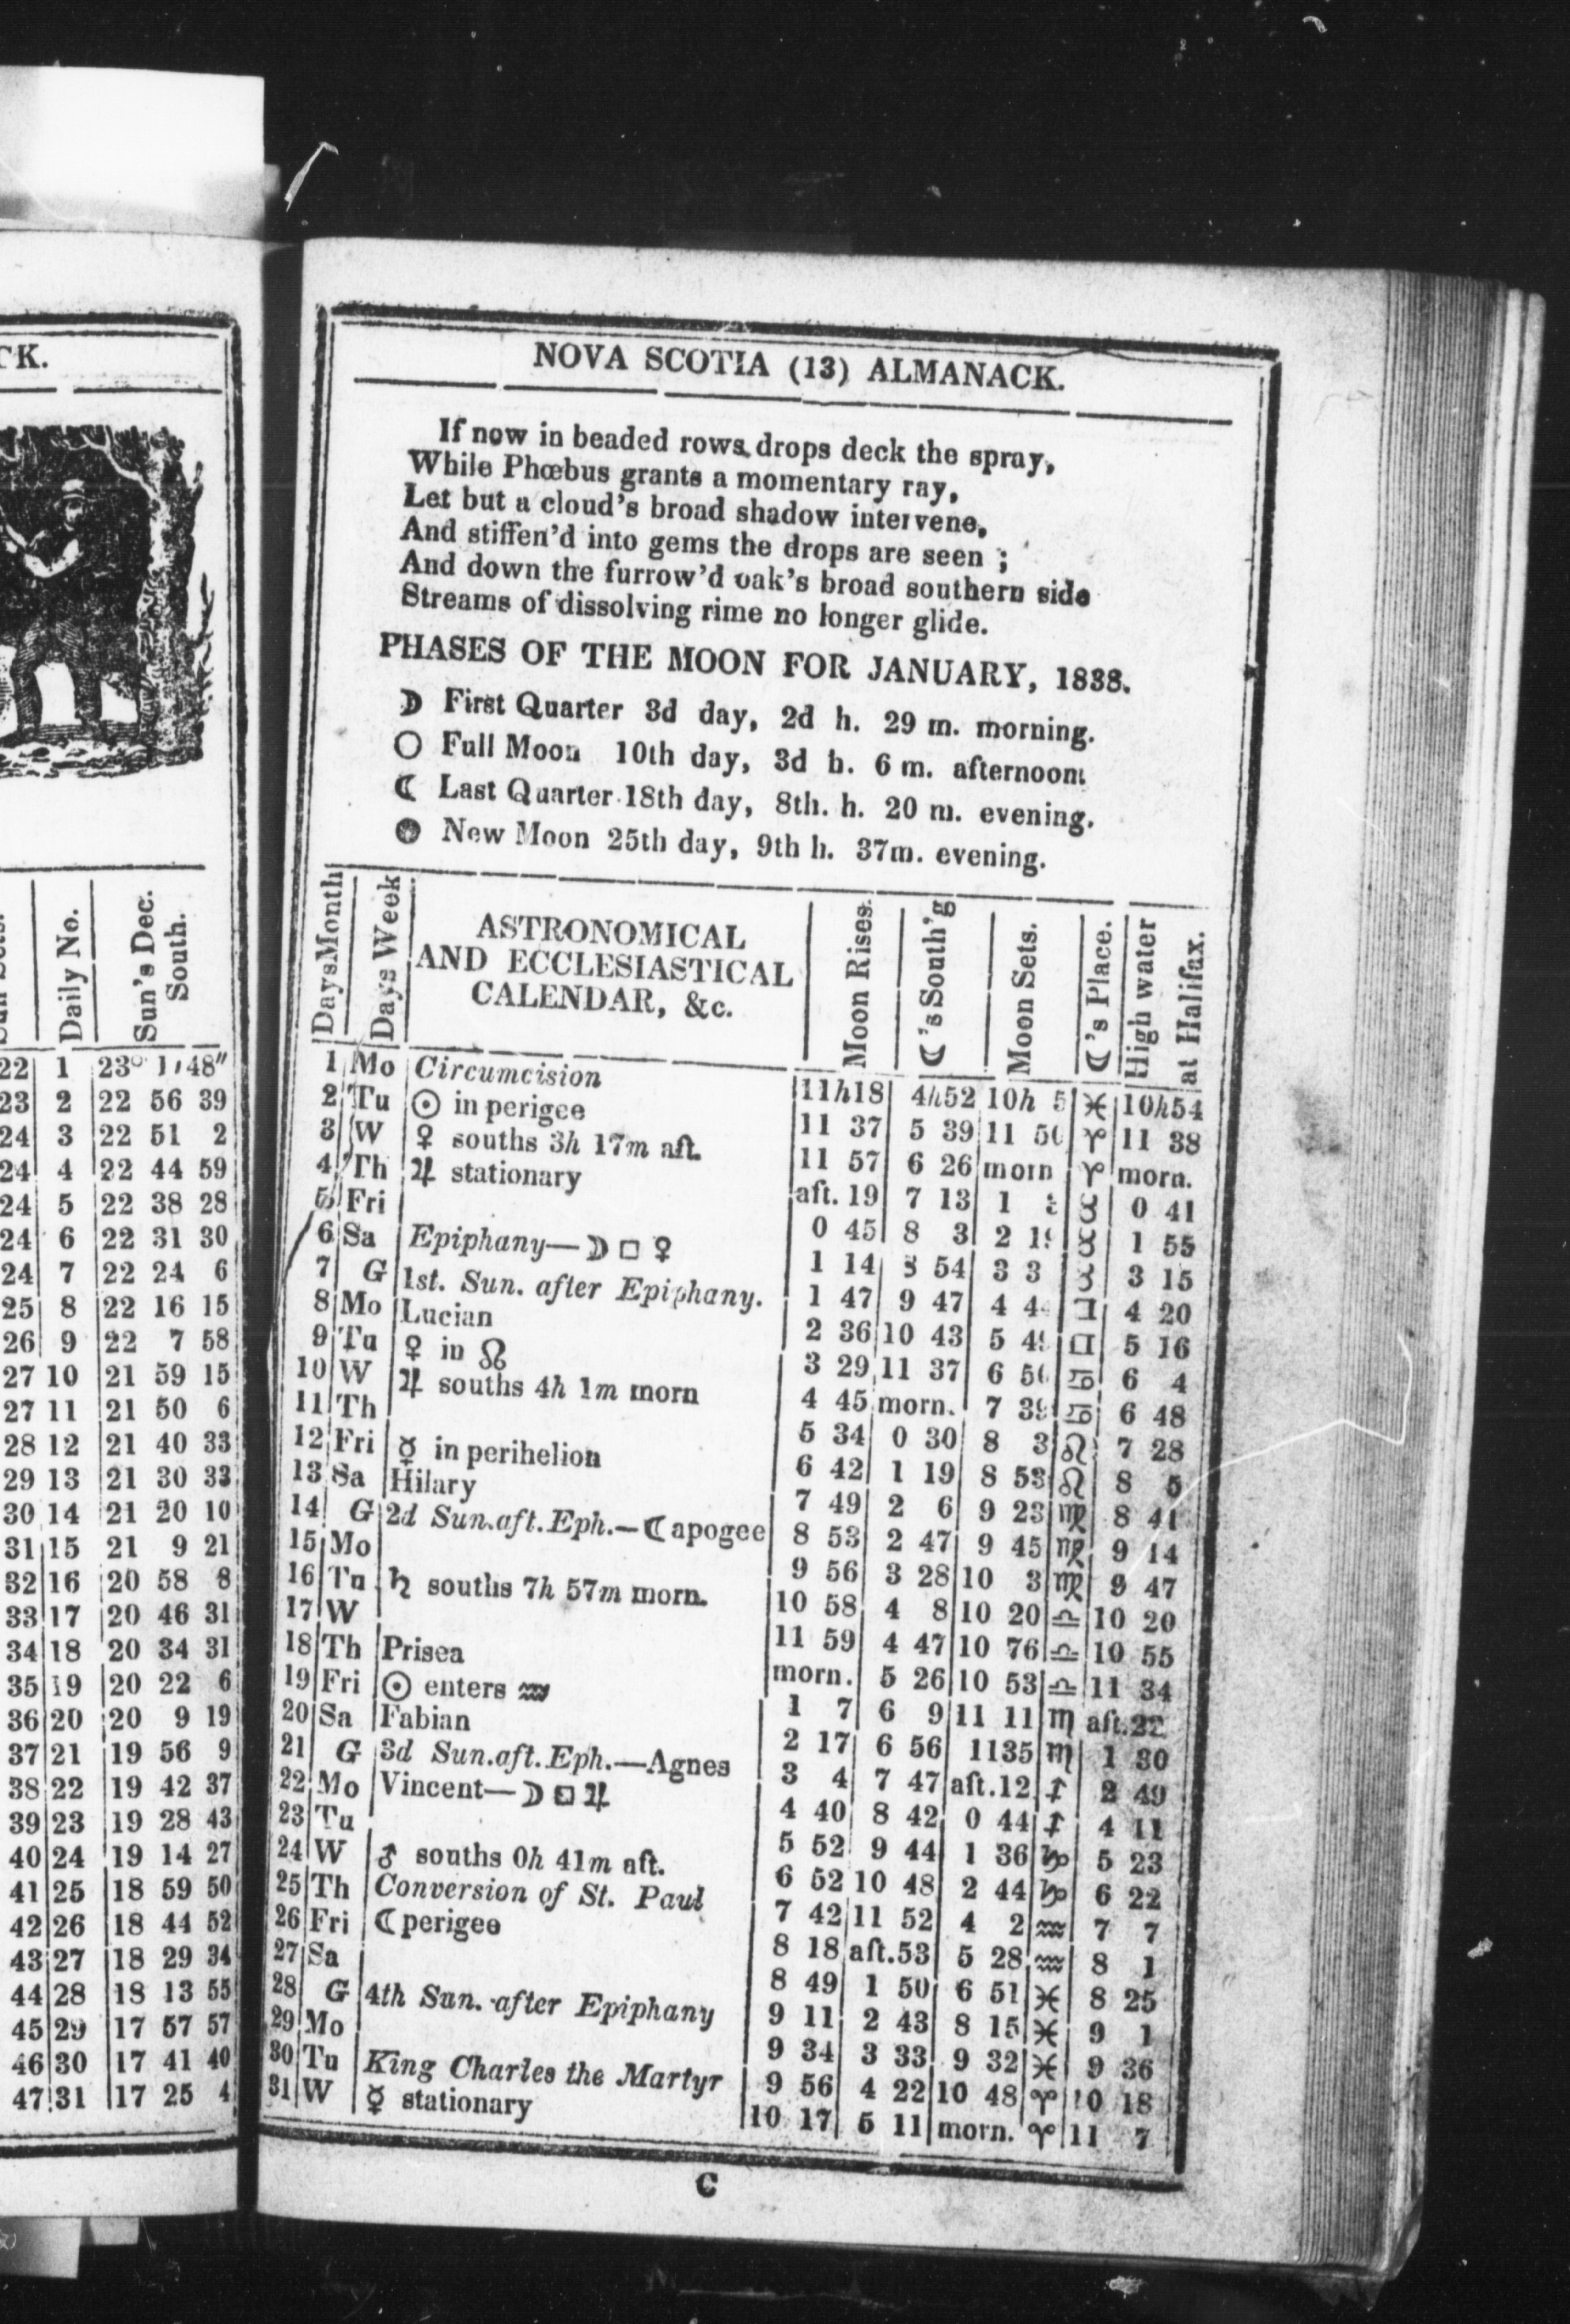 CK.
Daily No.
Sun's Dec. South.
22 1 23° 1' 48"
23 2 22 56 39
24 3 22 51 2
24 4 22 44 59
24 5 22 38 28
24 6 22 31 30
24 7 22 24 6
25 8 22 16 15
26 9 22 7 58
27 10 21 59 15
27 11 21 50 6
28 12 21 40 33
29 13 21 30 33
30 14 21 20 10
31 15 21 9 21
32 16 20 58 8
33 17 20 46 31
34 18 20 34 31
35 19 20 22 6
36 20 20 9 19
37 21 19 56 9
38 22 19 42 37
39 23 19 28 43
40 24 19 14 27
41 25 18 59 50
42 26 18 44 52
43 27 18 29 34
44 28 18 13 55
45 29 17 57 57
46 30 17 41 40
47 31 17 25 4
NOVA SCOTIA (13) ALMANACK.
If now in beaded rows drops deck the spray,
While Phœbus grants a momentary ray,
Let but a cloud's broad shadow intervene,
And stiffen'd into gems the drops are seen ;
And down the furrow'd oak's broad southern side
Streams of dissolving rime no longer glide.
PHASES OF THE MOON FOR JANUARY, 1838.
☽ First Quarter 3d day, 2d h. 29 m. morning.
○ Full Moon 10th day, 3d h. 6 m. afternoon.
☾ Last Quarter 18th day, 8th. h. 20 m. evening.
● New Moon 25th day, 9th h. 37m. evening.
Days Month
Days Week
ASTRONOMICAL
AND ECCLESIASTICAL
CALENDAR, &c.
Moon Rises.
☾'s South'g
Moon Sets.
☾'s Place.
High water
at Halifax.
1 Mo Circumcision 11h18 4h52 10h 5 ♓ 10h54
2 Tu ☉ in perigee 11 37 5 39 11 ♈ 11 38
3 W ♀ souths 3h 17m aft. 11 57 6 26 morn ♈ morn.
4 Th ♃ stationary aft. 19 7 13 1 ♉ 0 41
5 Fri 0 45 8 3 2 ♉ 1 55
6 Sa Epiphany—☽ □ ♀ 1 14 8 54 3 ♉ 3 15
7 G 1st. Sun. after Epiphany. 1 47 9 47 4 ♊ 4 20
8 Mo Lucian 2 36 10 43 5 ♊ 5 16
9 Tu ♀ in ☊ 3 29 11 37 6 ♋ 6 4
10 W ♃ souths 4h 1m morn 4 45 morn. 7 39 ♋ 6 48
11 Th 5 34 0 30 8 3 ♌ 7 28
12 Fri ☿ in perihelion 6 42 1 19 8 53 ♌ 8 5
13 Sa Hilary 7 49 2 6 9 23 ♍ 8 41
14 G 2d Sun.aft.Eph.—☾ apogee 8 53 2 47 9 45 ♍ 9 14
15 Mo 9 56 3 28 10 3 ♍ 9 47
16 Tu ♄ souths 7h 57m morn. 10 58 4 8 10 20 ♎ 10 20
17 W 11 59 4 47 10 76 ♎ 10 55
18 Th Prisea morn. 5 26 10 53 ♎ 11 34
19 Fri ☉ enters ♒ 1 7 6 9 11 11 ♏ aft.22
20 Sa Fabian 2 17 6 56 1135 ♏ 1 30
21 G 3d Sun.aft.Eph.—Agnes 3 4 7 47 aft.12 ♐ 2 49
22 Mo Vincent—☽ □ ♃ 4 40 8 42 0 44 ♐ 4 11
23 Tu 5 52 9 44 1 36 ♑ 5 23
24 W ♂ souths 0h 41m aft. 6 52 10 48 2 44 ♑ 6 22
25 Th Conversion of St. Paul 7 42 11 52 4 2 ♒ 7 7
26 Fri ☾ perigee 8 18 aft.53 5 28 ♒ 8 1
27 Sa 8 49 1 50 6 51 ♓ 8 25
28 G 4th Sun. after Epiphany 9 11 2 43 8 15 ♓ 9 1
29 Mo 9 34 3 33 9 32 ♓ 9 36
30 Tu King Charles the Martyr 9 56 4 22 10 48 ♈ 10 18
31 W ☿ stationary 10 17 5 11 morn. ♈ 11 7
C